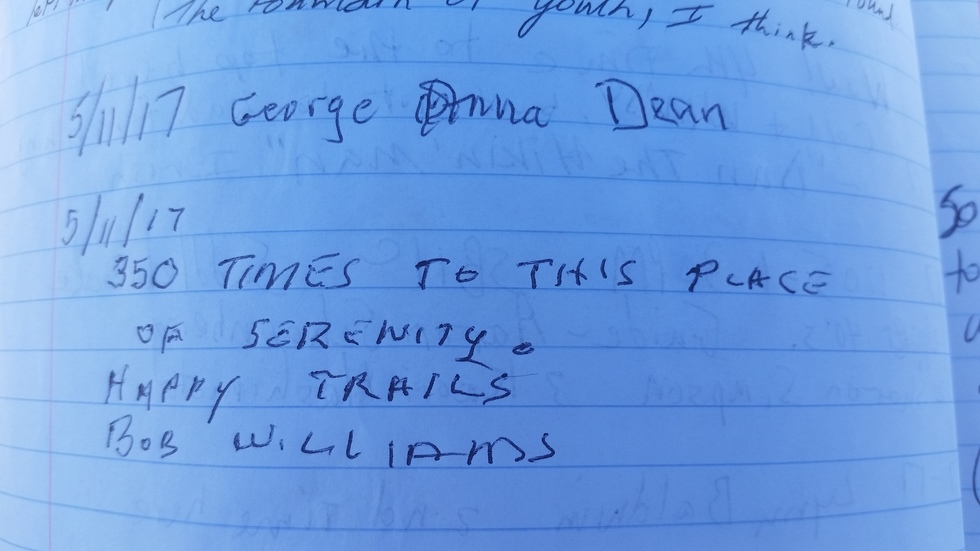 (The Fountain of Youth, I think.
5/11/17 George Donna Dean
5/11/17
350 TIMES TO THIS PLACE
OF SERENITY.
HAPPY TRAILS
BOB WILLIAMS
So
to